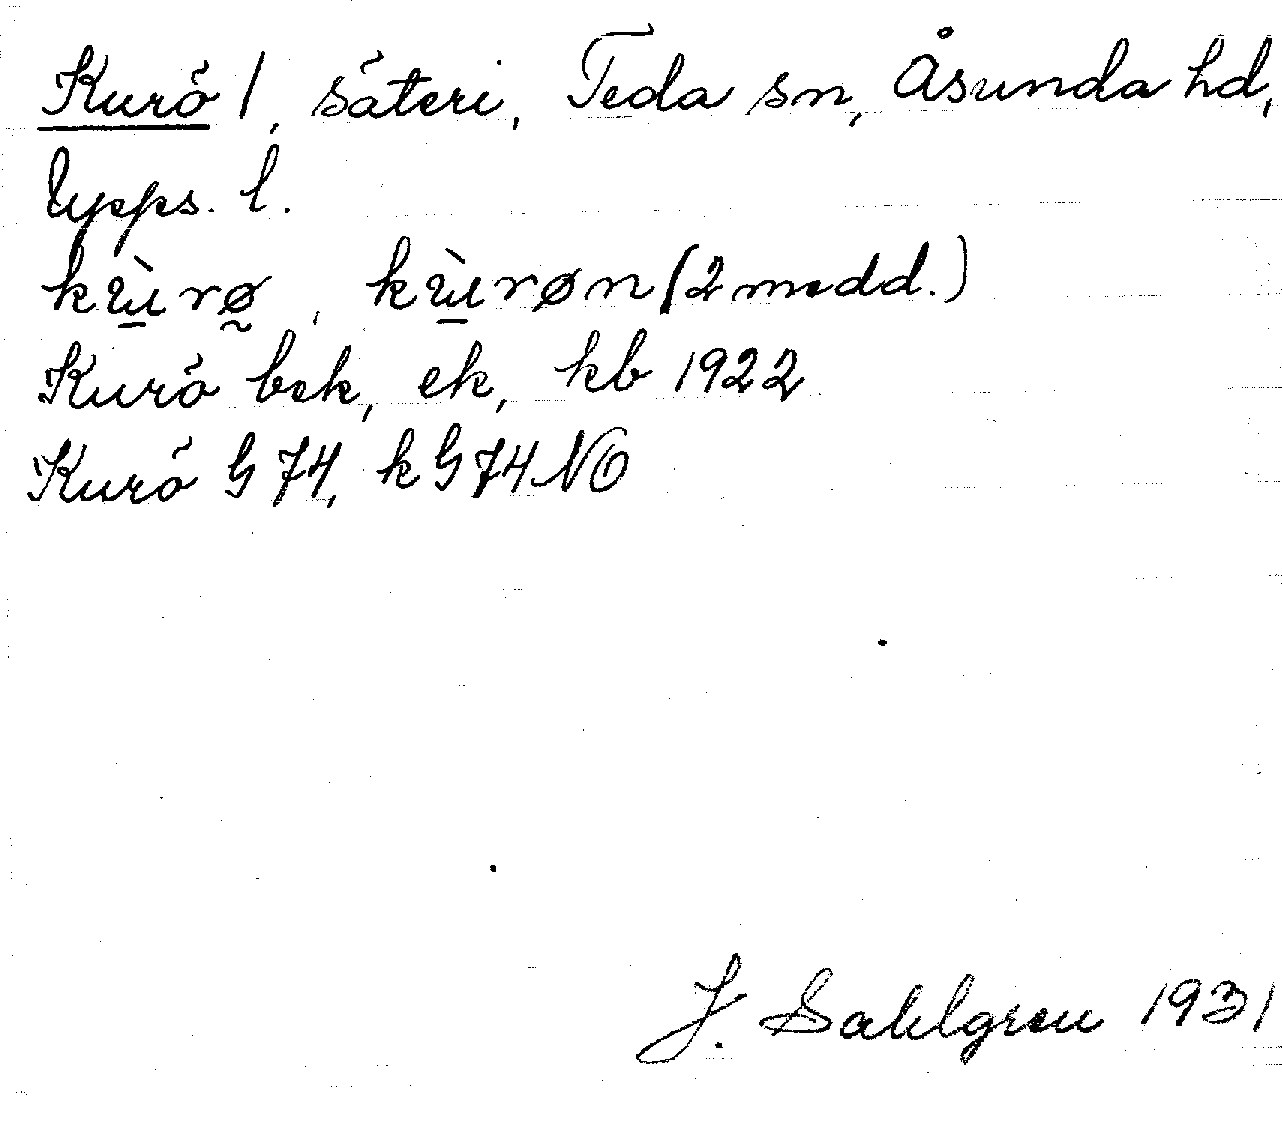 Kurö 1, säteri, Teda sn, Åsunda hd,
Upps. l.
kùrø, kùrøn (2 medd.)
Kurö bek, ek, kb 1922
Kurö G 74, k G 74 NO
J. Sahlgren 1931